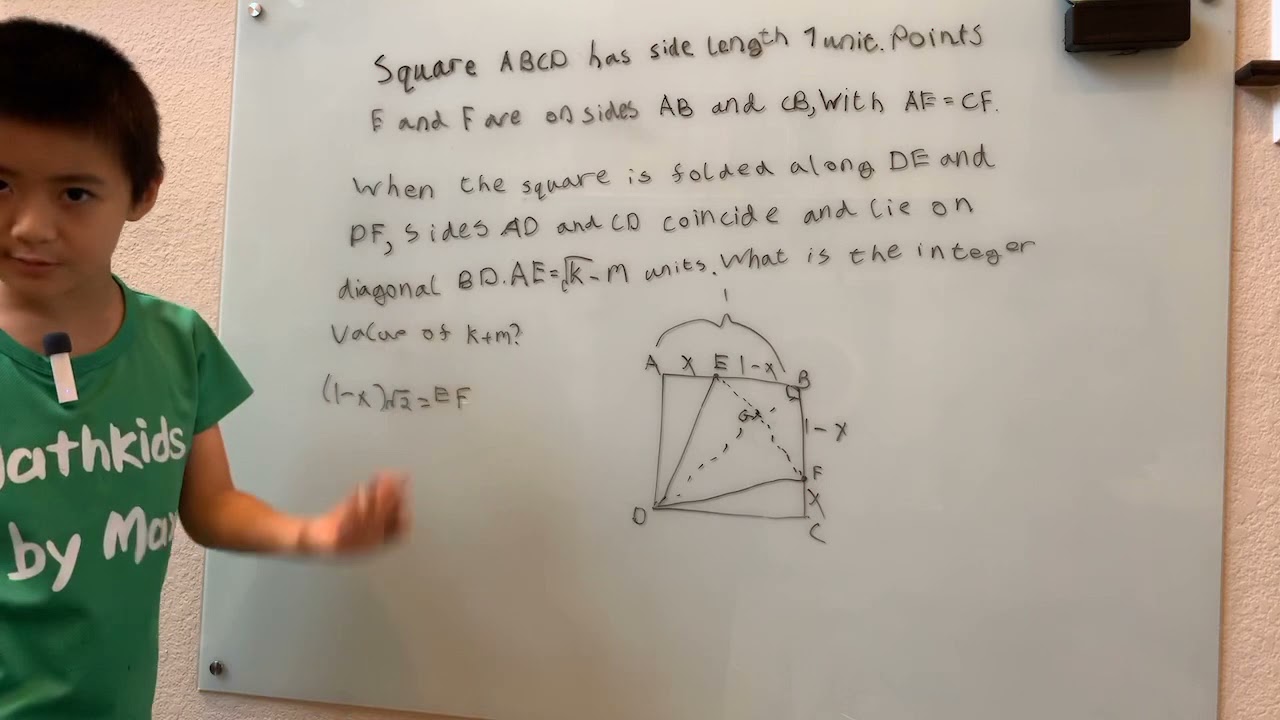 Square ABCD has side length 1 unit. Points
E and F are on sides AB and CB, with AE = CF.
When the square is folded along DE and
DF, sides AD and CD coincide and lie on
diagonal BD. AE = √k - m units. What is the integer
value of k+m?
(1-x)√2 = EF
1
A x E 1-x B
G
1-x
F
x
D
C
athkids
by Max